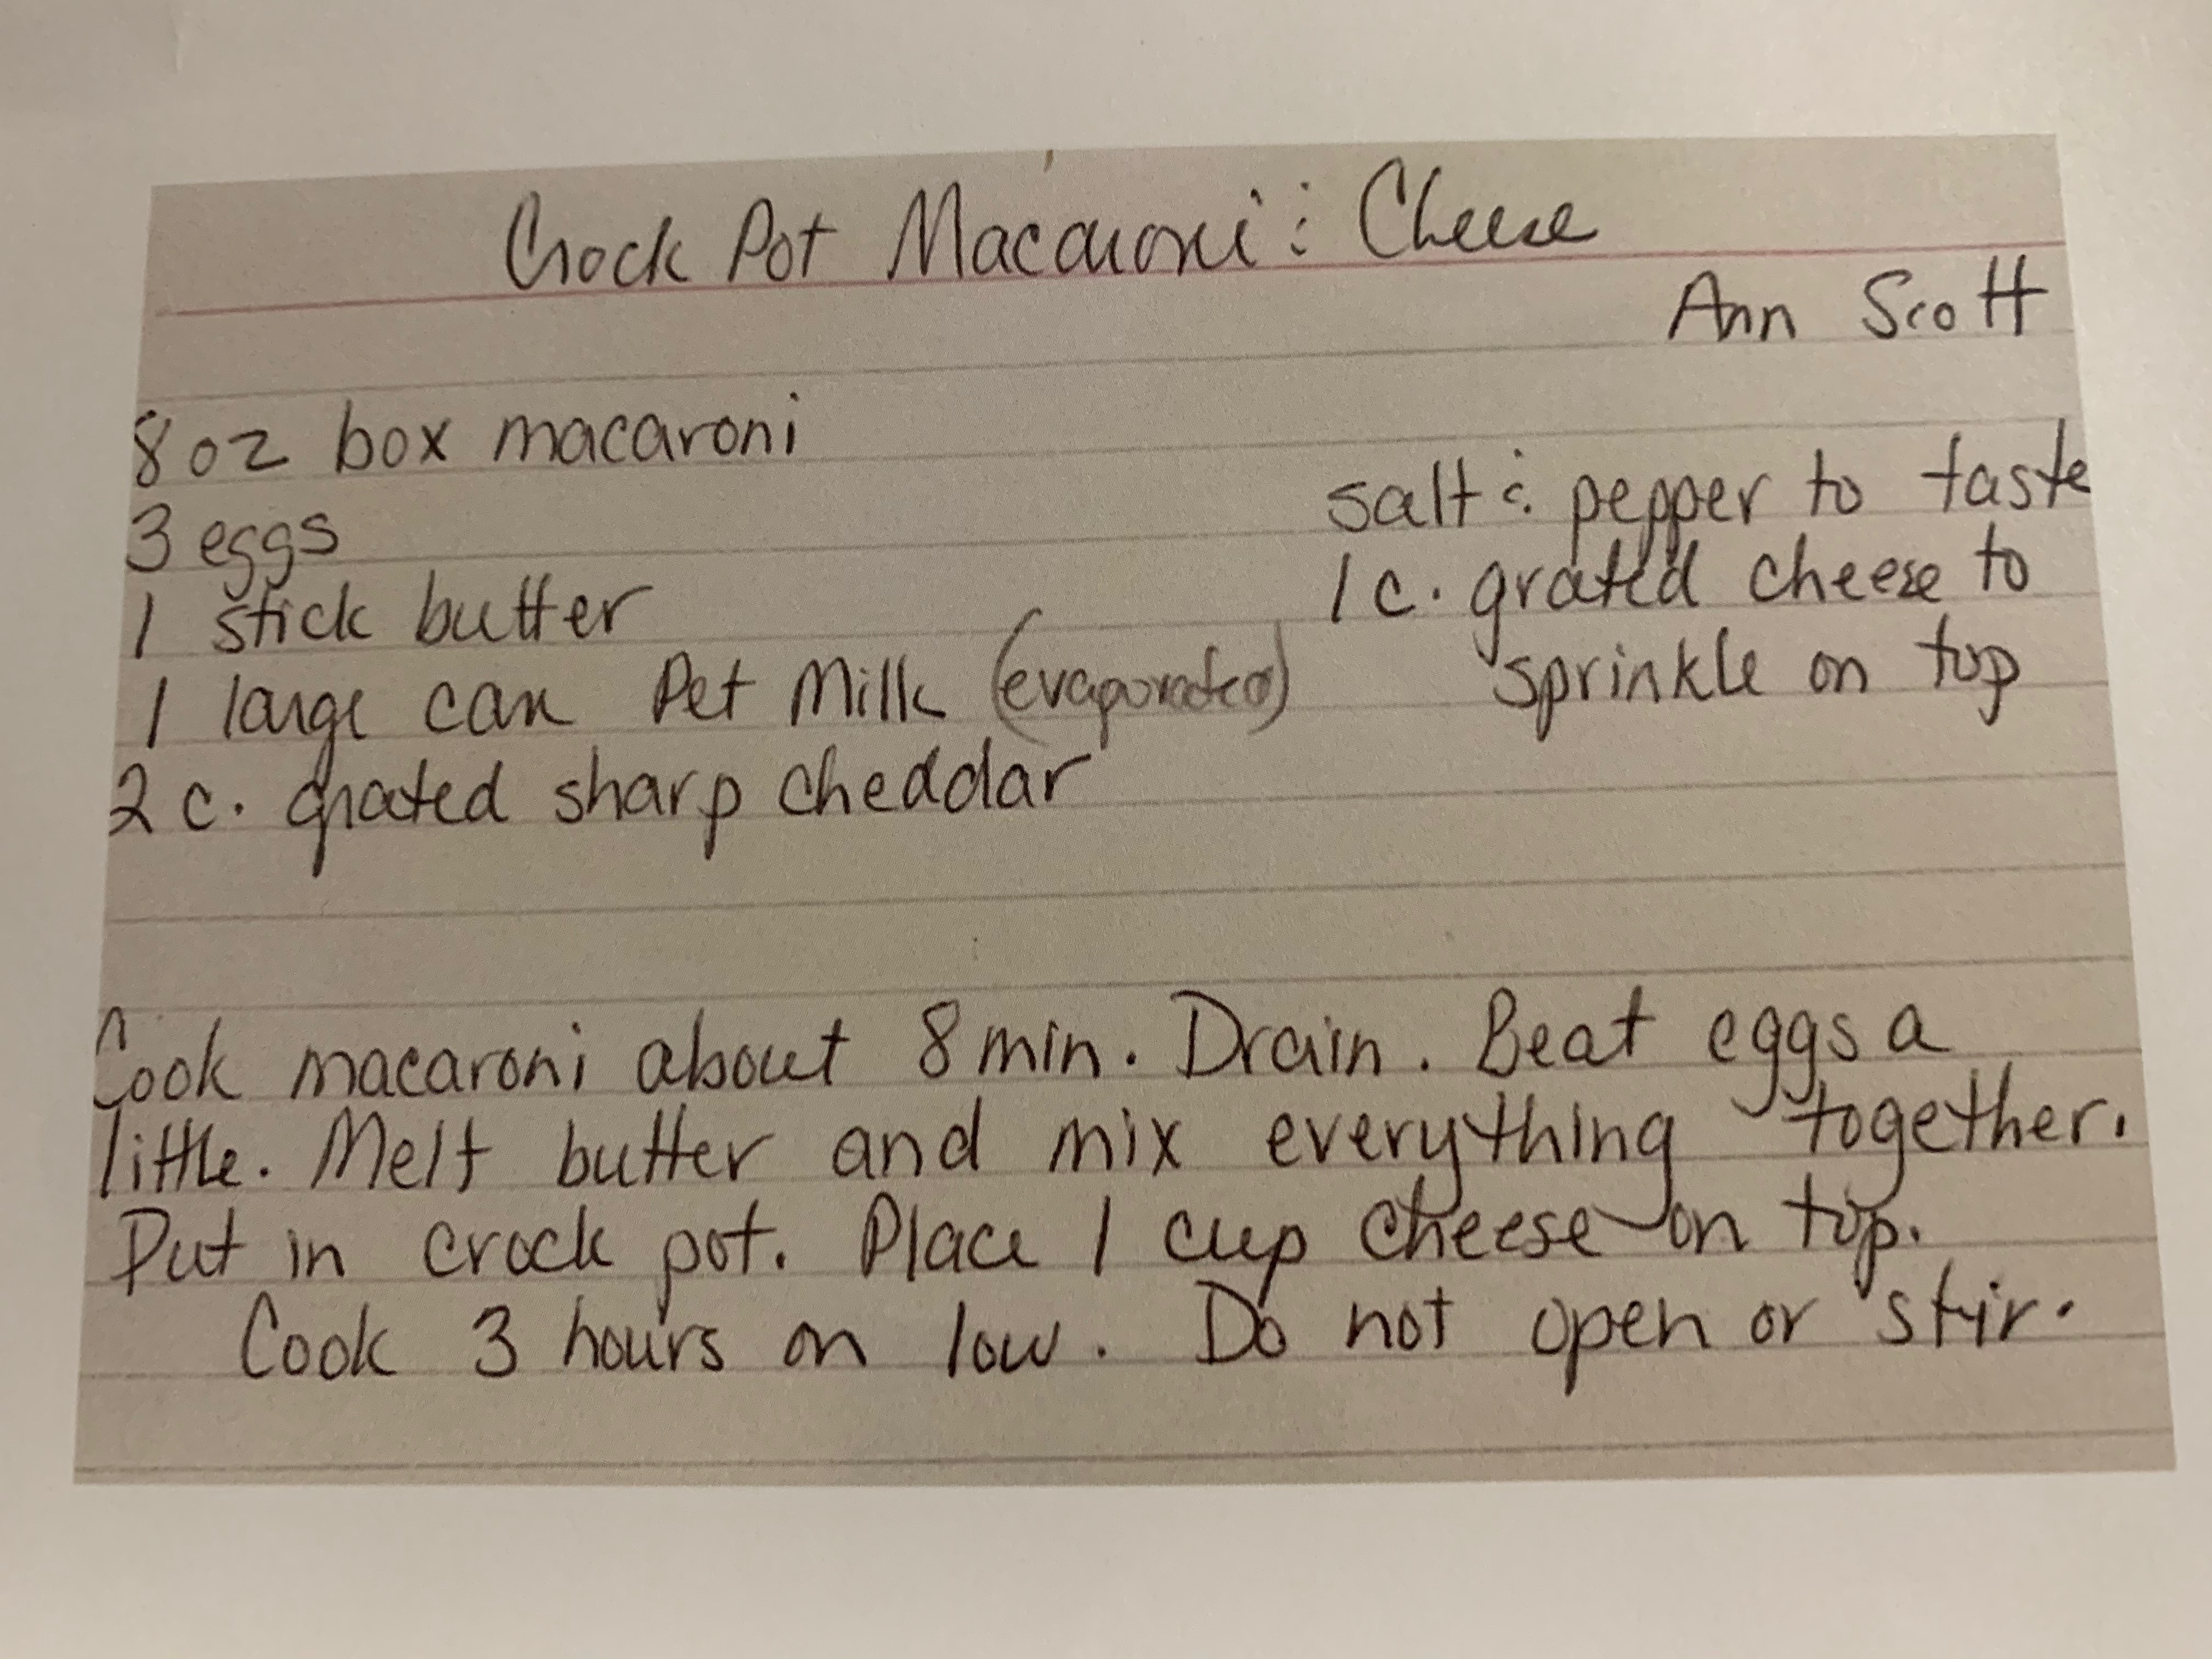 Crock Pot Macaroni & Cheese
Ann Scott
8 oz box macaroni
3 eggs
1 stick butter
1 large can Pet Milk (evaporated)
2 c. grated sharp cheddar
salt & pepper to taste
1 c. grated cheese to
sprinkle on top
Cook macaroni about 8 min. Drain. Beat eggs a
little. Melt butter and mix everything together.
Put in crock pot. Place 1 cup cheese on top.
Cook 3 hours on low. Do not open or stir.